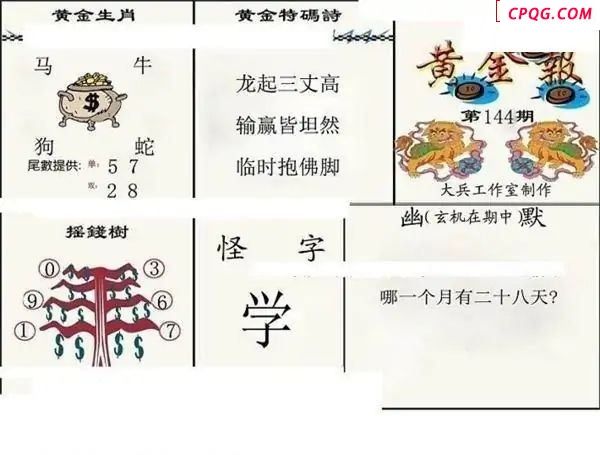 CPQG.COM
黄金生肖
马 牛
$
狗 蛇
尾數提供: 单: 5 7
双: 2 8
黄金特碼詩
龙起三丈高
输赢皆坦然
临时抱佛脚
黄金報
第144期
大兵工作室制作
摇錢樹
0 3
9 6
1 7
$ $ $ $ $ $ $ $
怪 字
学
幽(玄机在期中)默
哪一个月有二十八天?